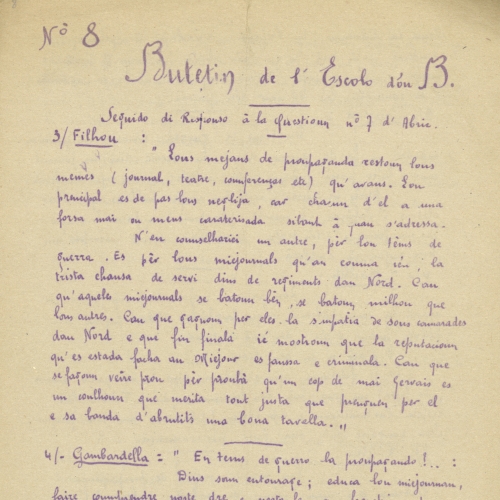 Nò 8
Buletin de l' Escolo dóu B.
Seguido di Responso à la Questioun nº 7 d' Abric.
3/ Filhou :
" Lous mejans de proupaganda restoun lous
mèmes ( journal, teatre, counferenças etc) qu' avans. Lou
principal es de pas lous neglija, car chacun d' el a una
forsa mai ou mens caraterisada siban à quau s'adressa.
N'en counselhariei un autre, pèr lou tèms de
guerra. Es pèr lous miejournals qu'an couma ièu, la
trista chansa de servi dins de regiments dau Nord. Cau
qu'aqueles miejournals se batoun bèn, se batoun milhou que
lous autres. Cau que gagnoun per eles la simpatia de sous camarades
dau Nord e que fin finala ié mostroun que la reputacioun
qu'es estada facha au Miejour es faussa e criminala. Cau que
se fagoun veire prou pèr prouba qu'un cop de mai Gervais es
un coulhoun que merita tout justa que prenguen per el
e sa banda d'abrutits una bona tavella. "
4/- Gambardella = " En tems de guerro la proupagando !.. :
Dins soun entourage ; educa lou miejournau,
faire coumprendre noste dre e